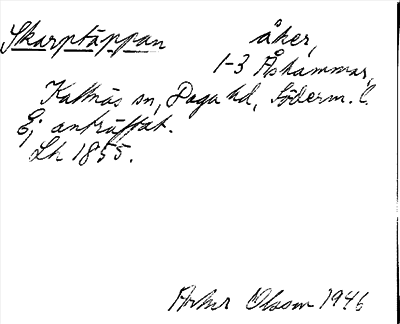 Skarptäppan åker,
1-3 Åshammar,
Kattnäs sn, Daga hd, Söderm. l.
Ej anträffat.
Lh 1855.
Artur Olsson 1946